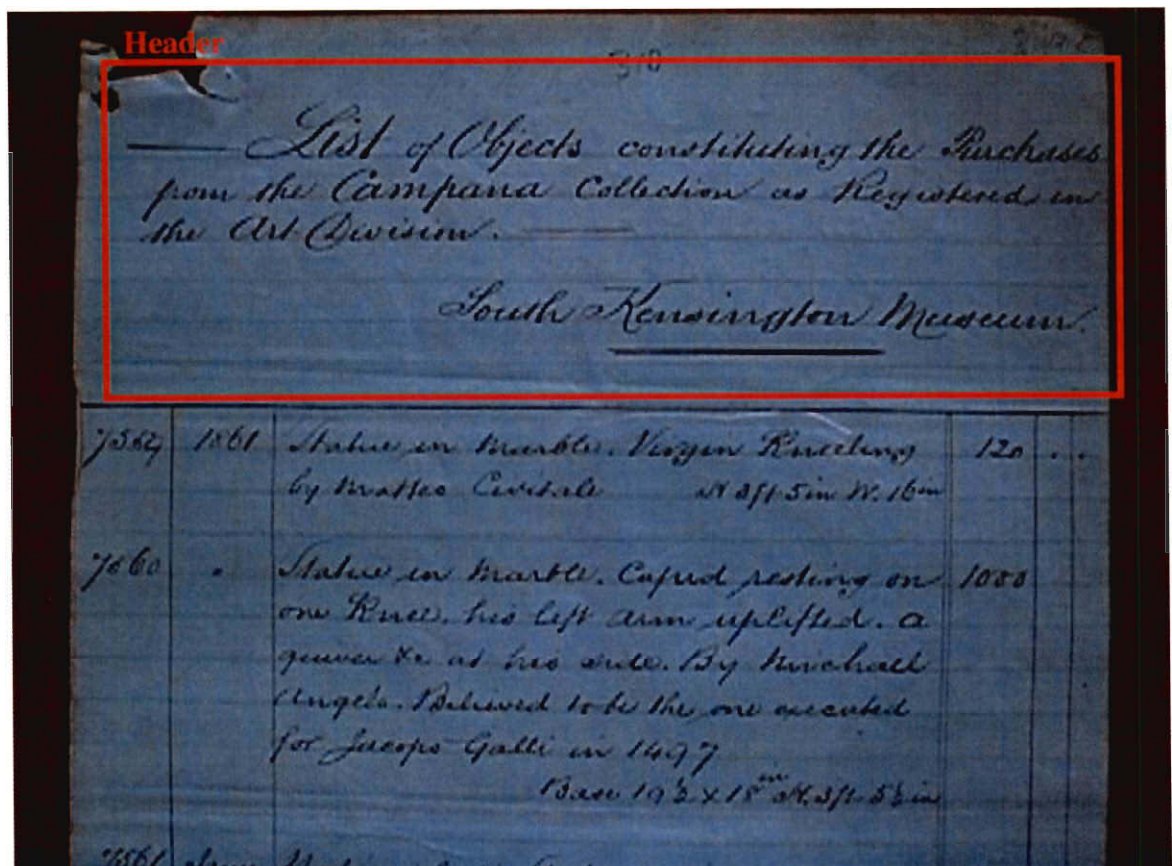 Header
310
List of Objects constituting the Purchases
from the Campana Collection as Registered in
the Art Division.
South Kensington Museum.
1861 Statue in Marble. Virgin Kneeling 120 . .
by Matteo Civitale H 3ft 5in W. 16in
7560 " Statue in Marble. Cupid resting on 1000
one Knee. his left arm uplifted. a
quiver &c at his side. By Michael
Angelo. Believed to be the one executed
for Jacopo Galli in 1497
Base 19½ x 18in H. 3ft 5½in
7561